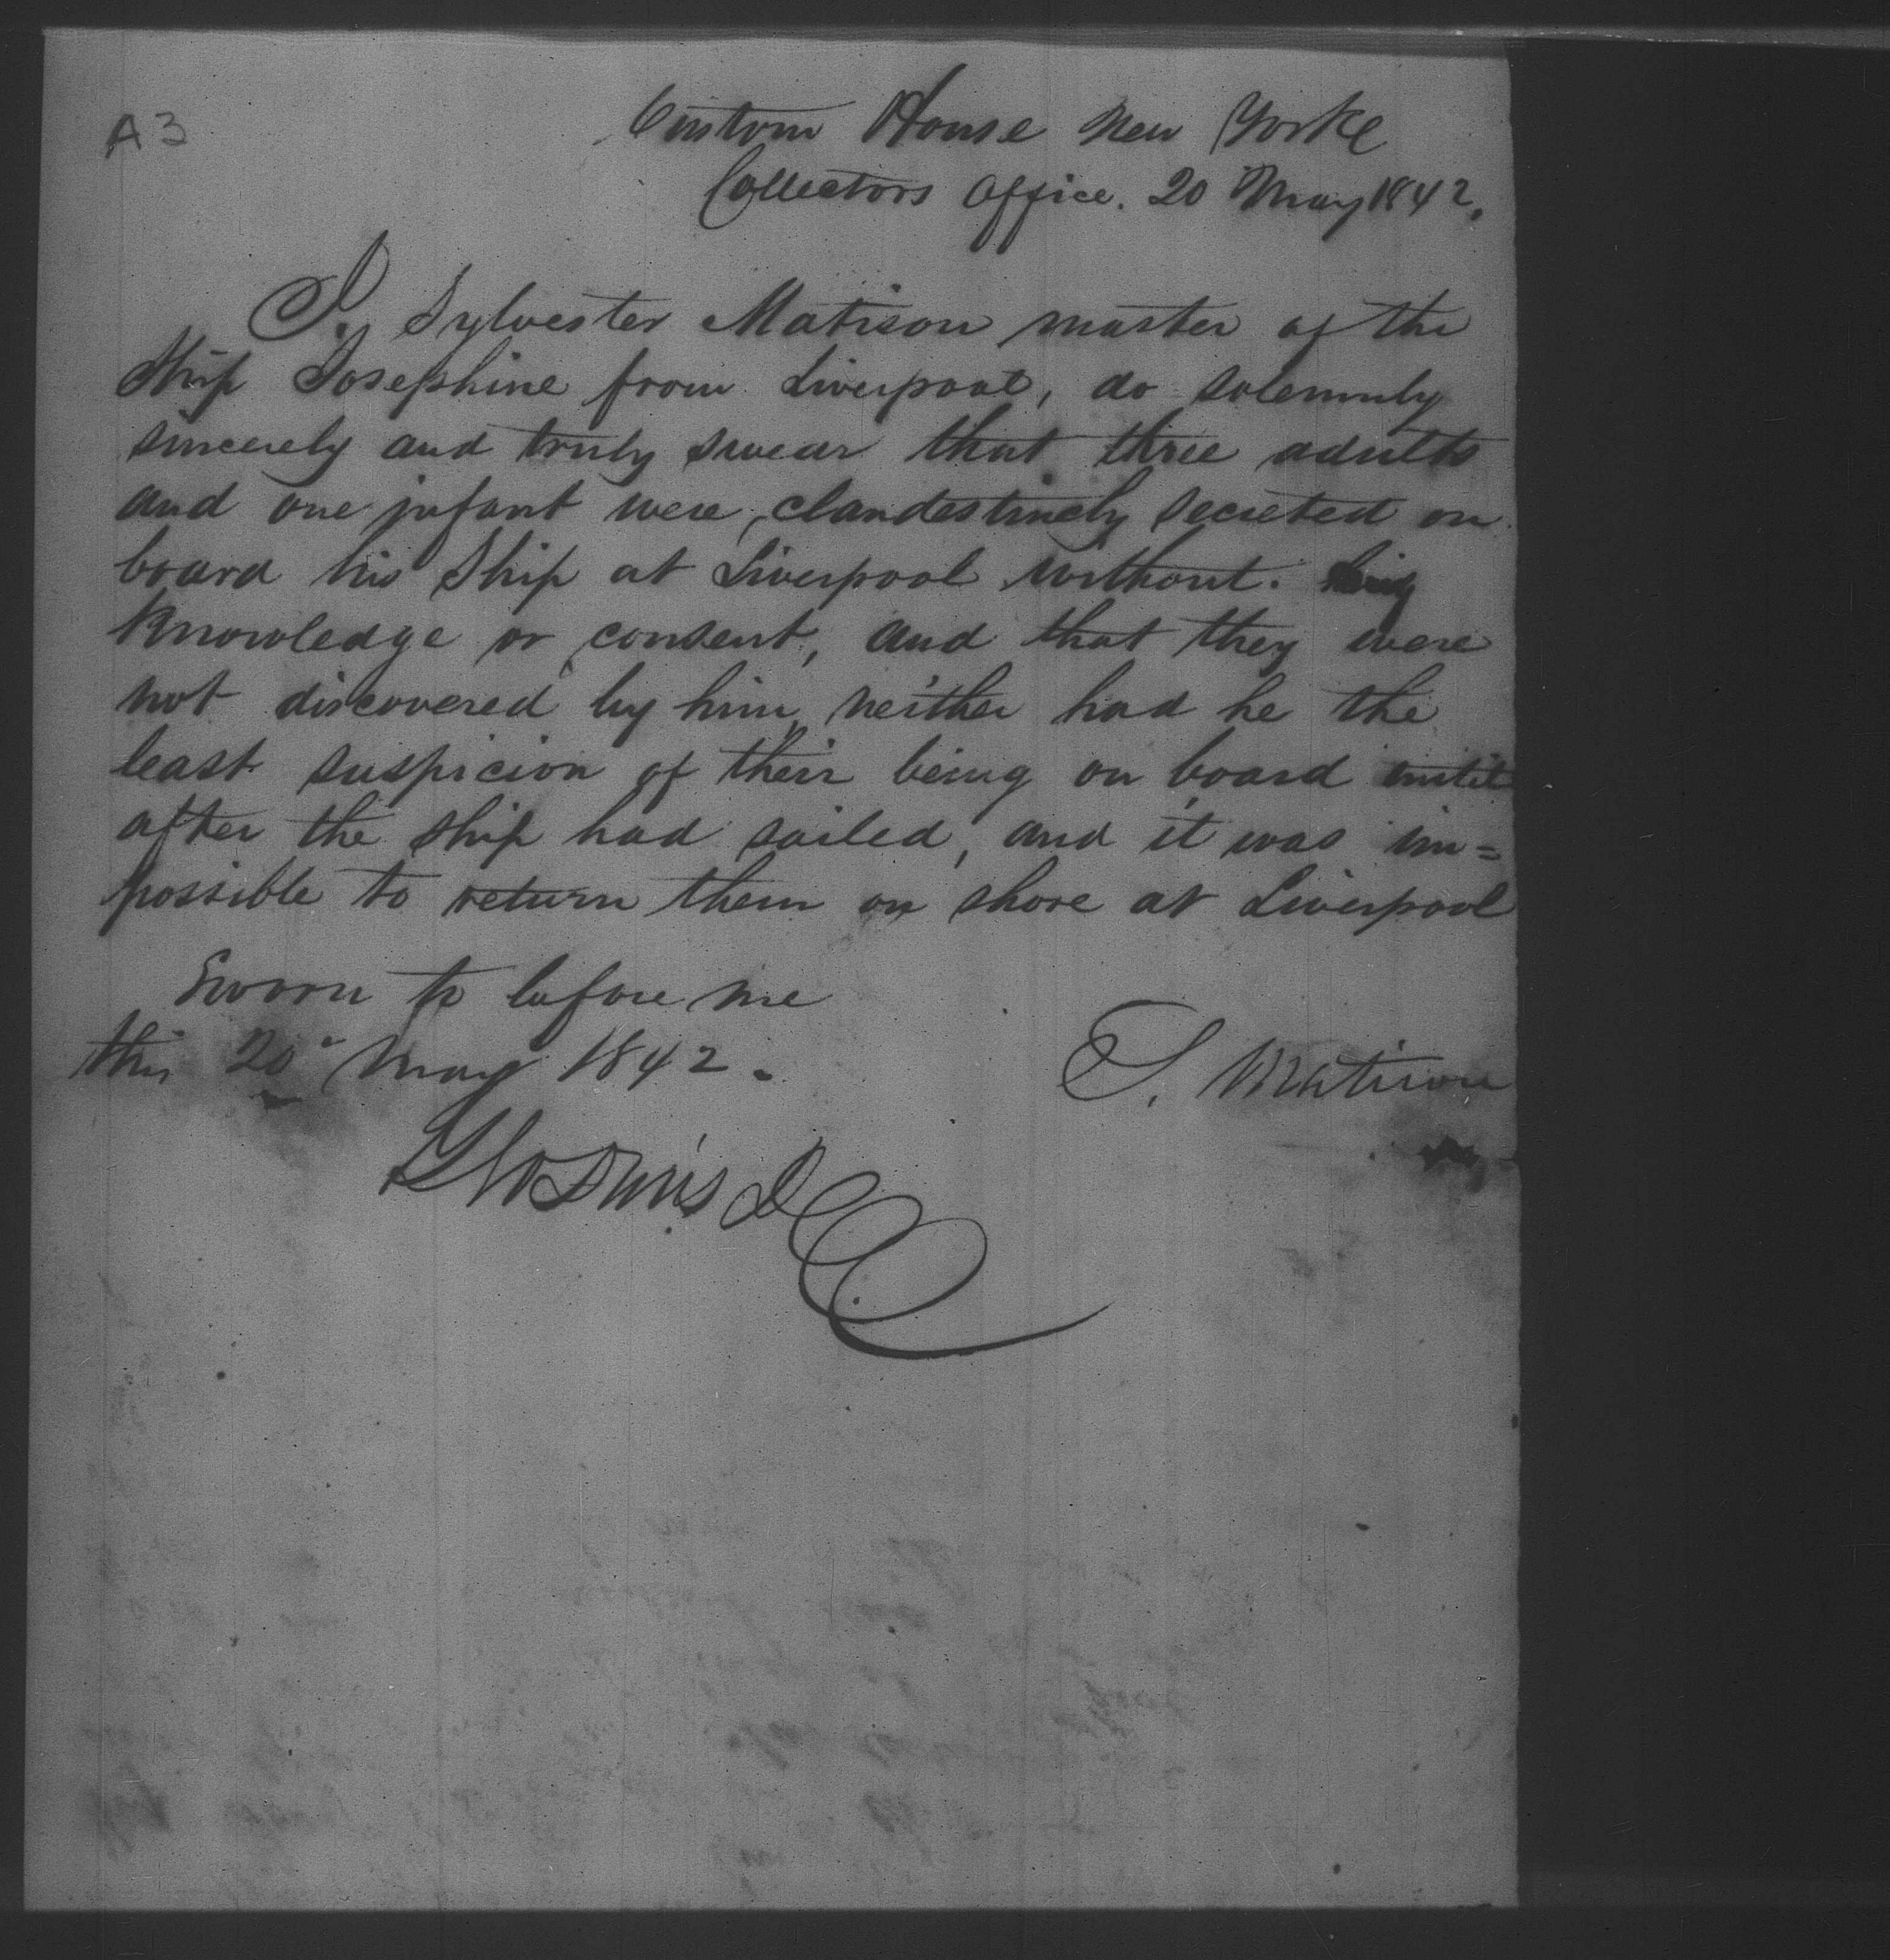 A3
Custom House New York
Collectors Office. 20 May 1842.
I, Sylvester Matison master of the
Ship Josephine from Liverpool, do solemnly
sincerely and truly swear that three adults
and one infant were clandestinely secreted on
board his Ship at Liverpool without
Knowledge or consent, and that they were
not discovered by him, neither had he the
least suspicion of their being on board until
after the ship had sailed, and it was im=
possible to return them on shore at Liverpool
Sworn to before me
this 20 May 1842.
S. Matison